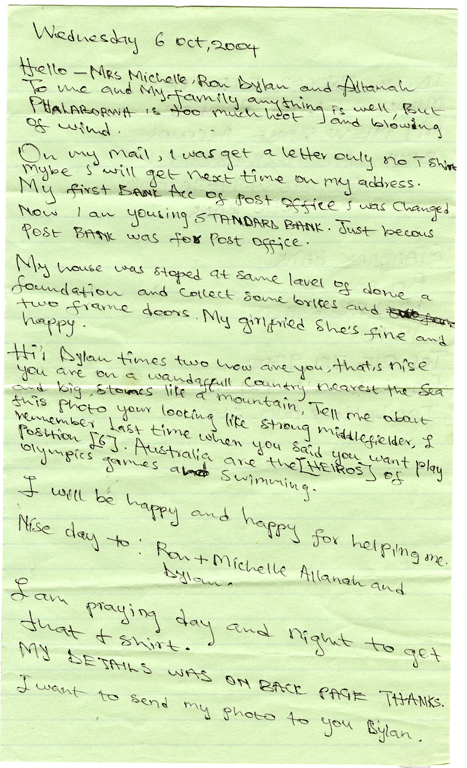 Wednesday 6 Oct, 2004
Hello - Mrs Michelle, Ron Dylan and Allanah
To me and My family anything is well, But
PHALABORWA is too much hot and blowing
of wind.
On my mail, I was get a letter only no T shirt
mybe I will get next time on my address.
My first BANK Acc of Post office I was Changed
Now I am yousing STANDARD BANK. Just becous
Post BANK was for Post office.
My house was stoped at same lavel of done a
foundation and collect some brikes and
two frame doors. My girlfried she's fine and
happy.
Hi! Dylan times two how are you, that,s nise
you are on a wandafull Country nearest the Sea
and big stones like a mountain, Tell me about
this photo your looking like strong middlefielder, I
remember last time when you said you want play
position [6]. Australia are the [HEIROS] of
olympics games and swimming.
I will be happy and happy for helping me.
Nise day to: Ron + Michelle Allanah and
Dylan.
I am praying day and night to get
that t shirt.
MY DETAILS WAS ON BACK PAGE THANKS.
I want to send my photo to you Dylan.